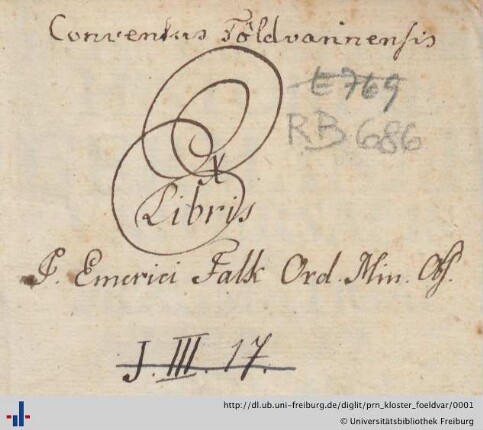 Conventus Földvariensis
E 769
RB 686
Ex
Libris
P. Emerici Falk Ord. Min. Obs.
J. III. 17.
http://dl.ub.uni-freiburg.de/diglit/prn_kloster_foeldvar/0001
© Universitätsbibliothek Freiburg